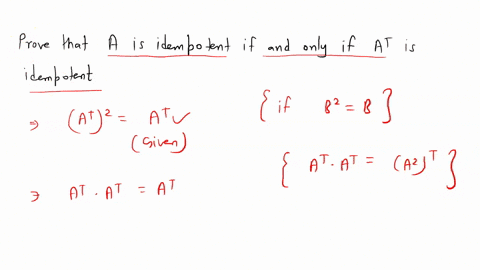 Prove that A is idempotent if and only if Aᵀ is
idempotent
⇒ (Aᵀ)² = Aᵀ ✓
(Given)
{ if B² = B }
{ Aᵀ · Aᵀ = (A²)ᵀ }
⇒ Aᵀ · Aᵀ = Aᵀ